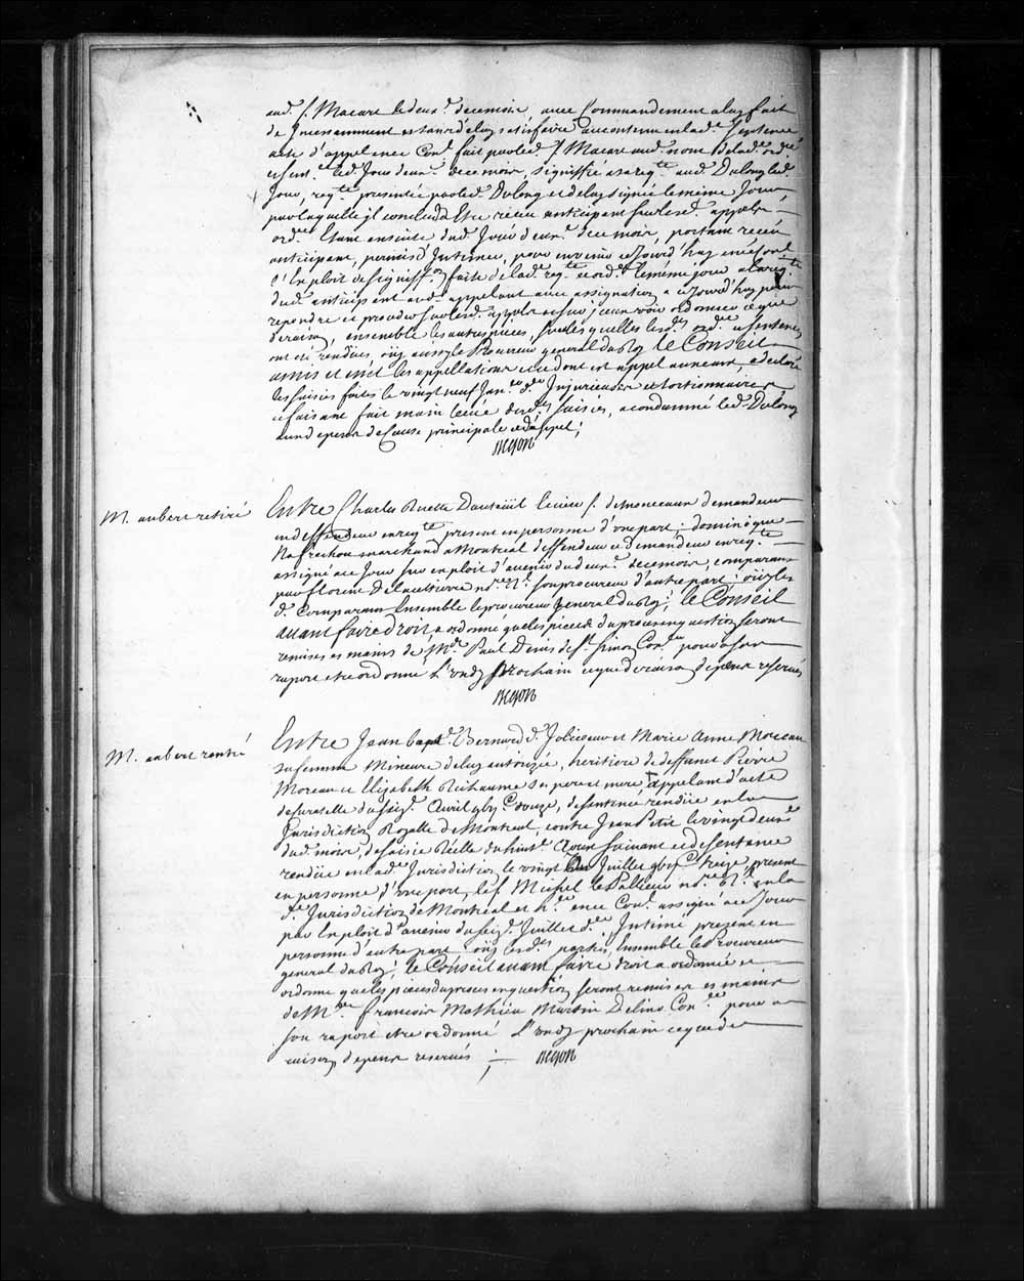 aud. S. Macare le deux.e decembre avec Commandement a luy fait
de Incessamment et sans delay satisfaire au contenu en lad.e Sentence,
acte d'appel en ce Con.l fait par led. S. Macare aud. nom de lad. ord.ce
et sent.ce led. Jour deux.e decembre, signiffié a sa req.te aud. Dulong led.
Jour, req.te presentée par led. Dulong et de luy signée le même Jour,
par laquelle il conclud a Estre receu anticipant sur lesd. appels
ord.ce Estant ensuite dud. Jour deux.e decembre, portant receu
anticipant, permis d'Intimer, pour en venir a ce Jourd'huy en cẽ Con.l
l'Exploit de signiff.on faite de lad. req.te et ord.ce le même jour a la req.te
dud. anticipant aud. appelant avec assignation a ce Jourd'huy pour
repondre et proceder sur lesd. appels et sur jceux voir ordonner ce que
de raison, ensemble les autres pieces, sur lesquelles lesd. ord.ce et sentence
ont eté rendües, oüy aussy le Procureur general du Roy le Conseil
a mis et met les appellations et ce dont est appel au neant, a declaré
les saisies faites le vingt neuf Jan.er d.er Injurieuses et tortionnaires
ce faisant fait main levée desd. saisies, a condamné led. Dulong
aux depens de Cause principale et d'appel;
Begon
M. aubert retiré
Entre Charles Ruette Dauteüil Ecuier S. de monceaux demandeur
et deffendeur en req.te present en personne d'une part; dominique
Nafrechou marchand a Montreal deffendeur et demandeur en req.te
assigné a ce Jour par exploit d'avenir du deux.e decembre, comparant
par florent de la cetierre no.re R.l son procureur d'autre part; oüy les
d. Comparans Ensemble le procureur general du Roy; le Conseil
avant faire droit a ordonné que les pieces du proces en question seront
remises es mains de M.e Paul Denis de S.t Simon Con.er pour a son
raport etre ordonné L'undy prochain ce que de raison depens reservés
Begon
M. aubert rentré
Entre Jean bapt.e Bernard d. Jolicoeur et Marie Anne Moreau
sa femme Mineure de luy autorizée, heritiere de deffunct Pierre
Moreau et Elizabeth Rechaume ses pere et mere appelant d'acte
de curatelle du seiz.e Avril gbij.c douze, de sentence rendüe en la
Jurisdiction Royalle de Montreal, contre Jean Petit le vingt deux.e
dud. mois, de saisie Réelle du huit.e Aoust suivant et de sentence
rendüe en lad.e Jurisdiction le vingt Juillet gbij.c treize present
en personne d'une part, et S. Michel le Pallieur no.re R.l en la
d.e Jurisdiction de Montréal et h.er en ce Con.l assigné a ce Jour
par Exploit d'avenir du seiz.e Juillet d.er, Intimé present en
personne d'autre part; oüy lesd. parties, Ensemble le Procureur
general du Roy; le Conseil avant faire droit a ordonné et
ordonne que les pieces du proces en question seront remises es mains
de M.e francois Mathieu Martin Delino Con.er pour a
son raport etre ordonné L'undy prochain ce que de
raison, depens reservés ;
Begon